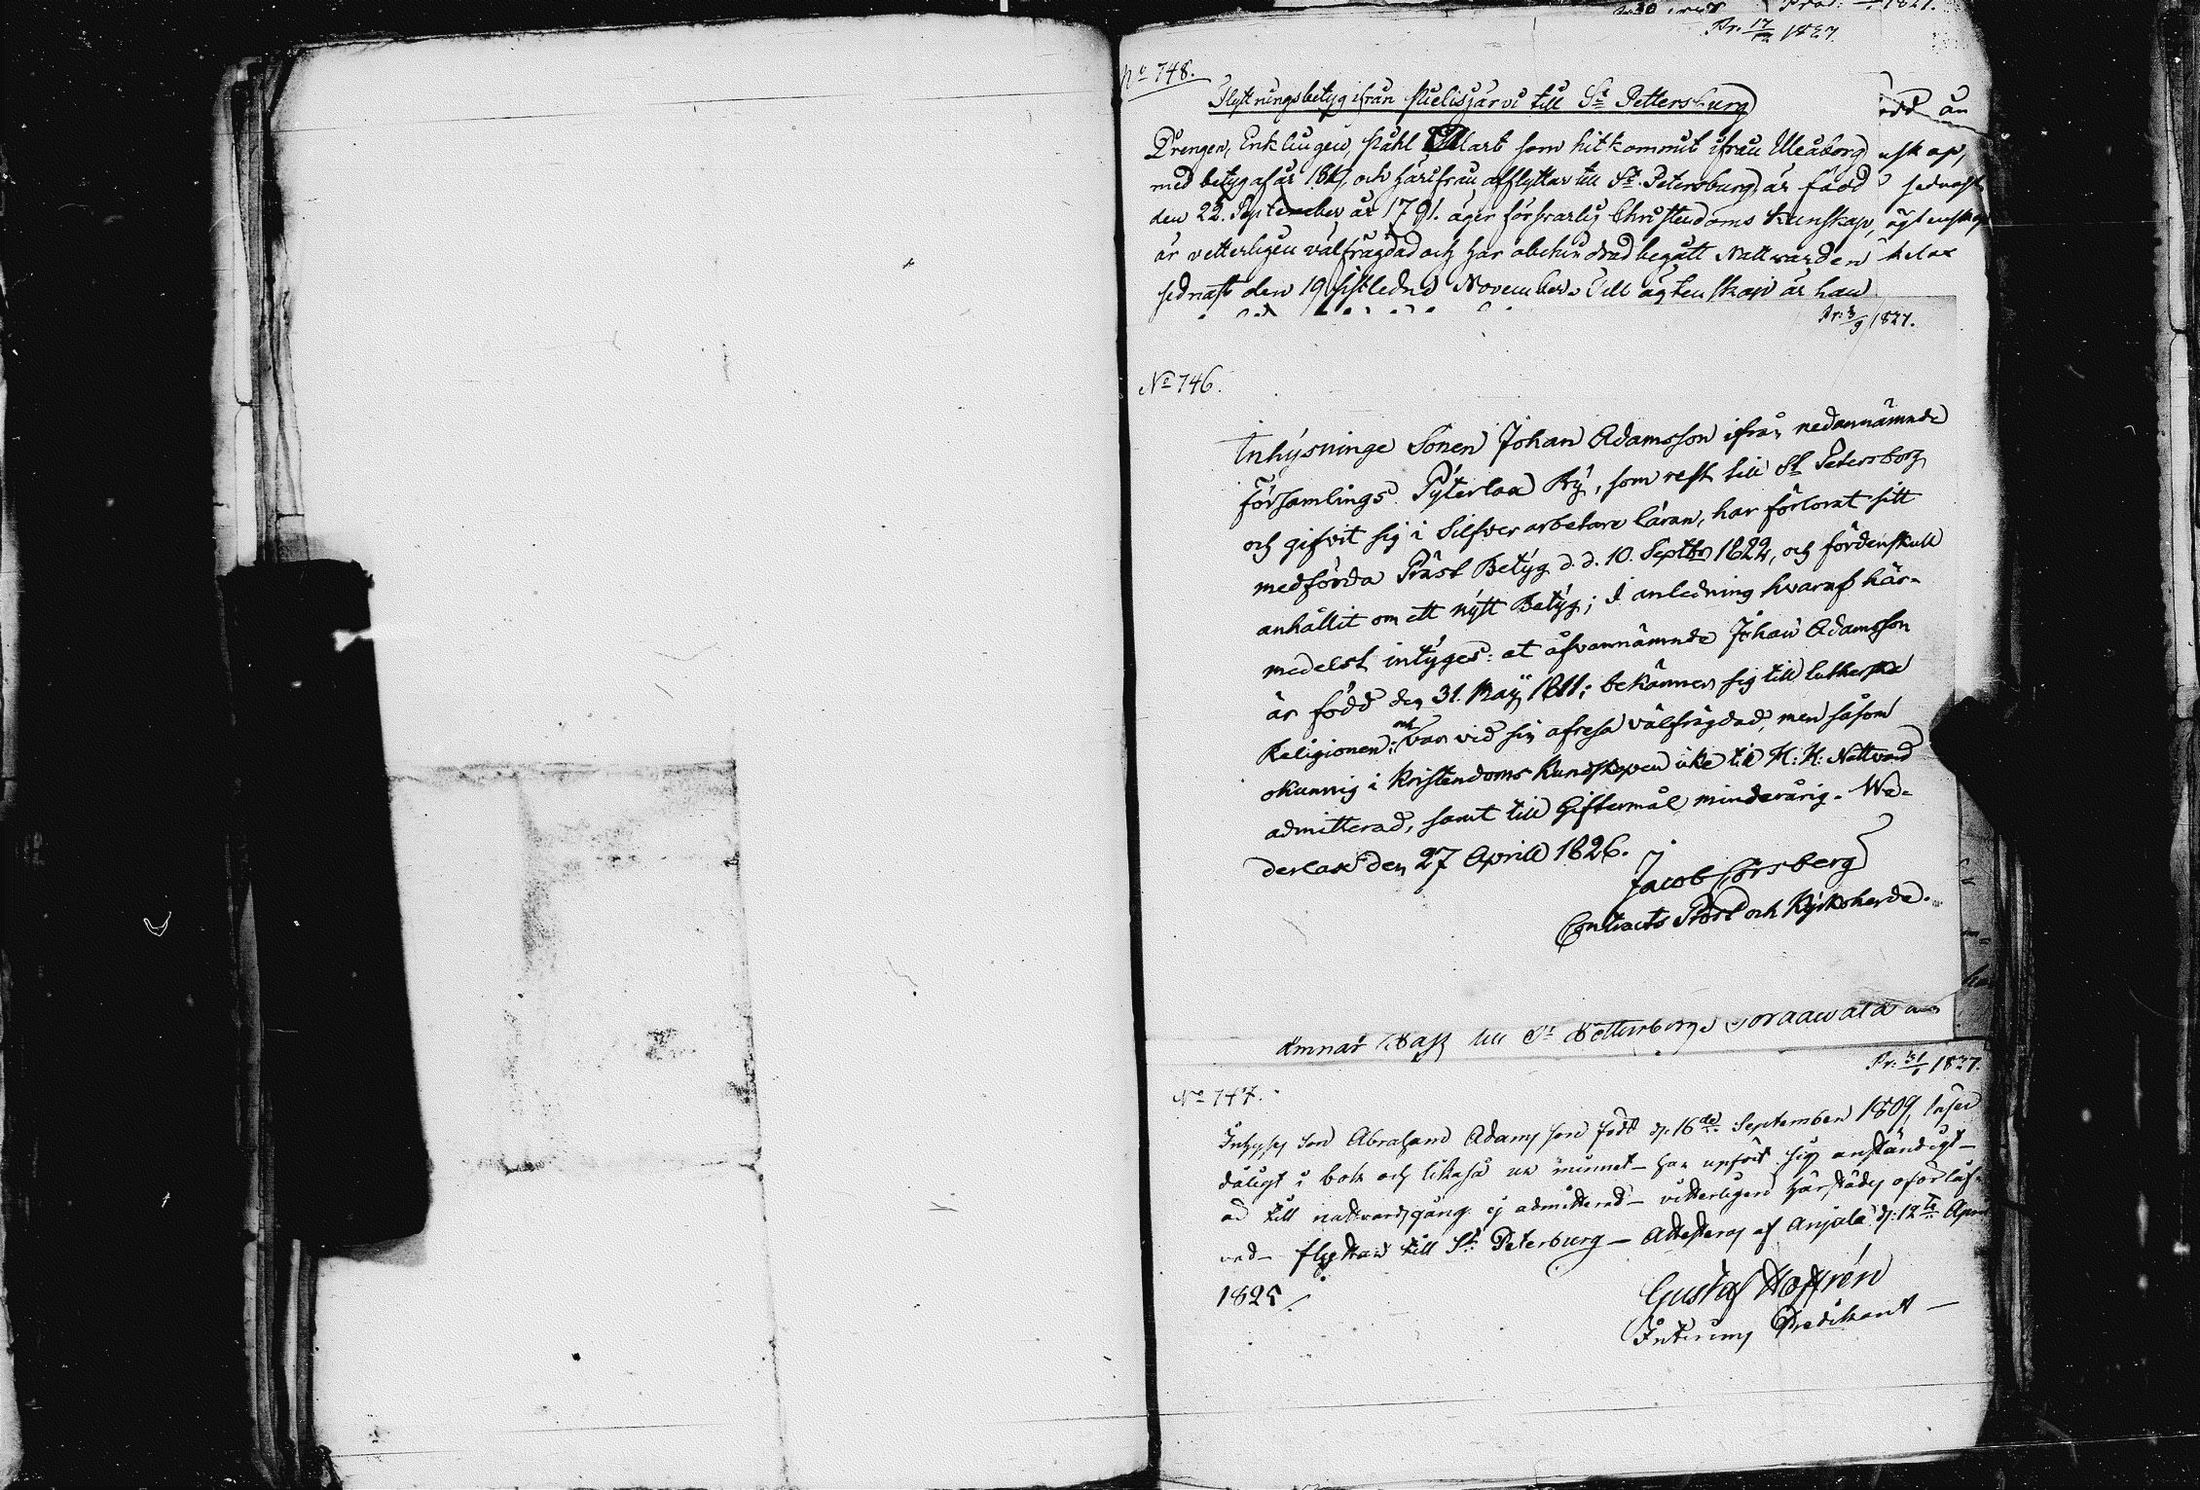 Pr. 17/12 1827.
No 748.
Flyttningsbetyg ifrån Pielisjärvi till St Pettersburg
Drengen, Enklingen, Påhl som hitkommit ifrån Uleåborg
med betyg af år och härifrån afflyttar till St. Petersburg, är född
den 22. September år 1791. äger försvarlig Christendoms kunskap,
är vetterligen välfrägdad och har obehindrad begått Nattvarden
sednast den 19 sistledne November. Till ägtenskap är han
Pr: 3/9 1827.
No 746.
Inhysninge Sonen Johan Adamsson ifrån nedannämnde
församlings Pyterlax By, som rest till St Petersborg
och gifvit sig i Silfverarbetare läran, har förlorat sitt
medförda Präst Betyg d. d. 10. Septbr 1822, och fördenskull
anhållit om ett nytt Betyg; i anledning hvaraf här-
medelst intyges: at åfvannämnde Johan Adamsson
är född den 31. Maij 1811; bekänner sig till lutherska
Religionen; och var vid sin afresa välfrägdad, men såsom
okunnig i Kristendoms Kunskapen icke til H: H: Nattvard
admitterad, samt till Giftermål minderårig. We-
derlax den 27 Aprill 1826.
Jacob Forsberg
Contracts Prost och Kyrkoherde.
ämnar till St
Pr: 31/1 1827.
No 747.
Inhyses Son Abraham Adamsson född d: 16de September 1809, läser
dåligt i bok och likaså ur minnet - har upfört sig anständigt -
ad till nattvardsgång ej admitterad - vetterligen härstädes oförlåf-
vad - flyttar till St: Peterburg - Attesteras af Anjala d: 12te April
1825.
Gustaf
Interims Predikant -